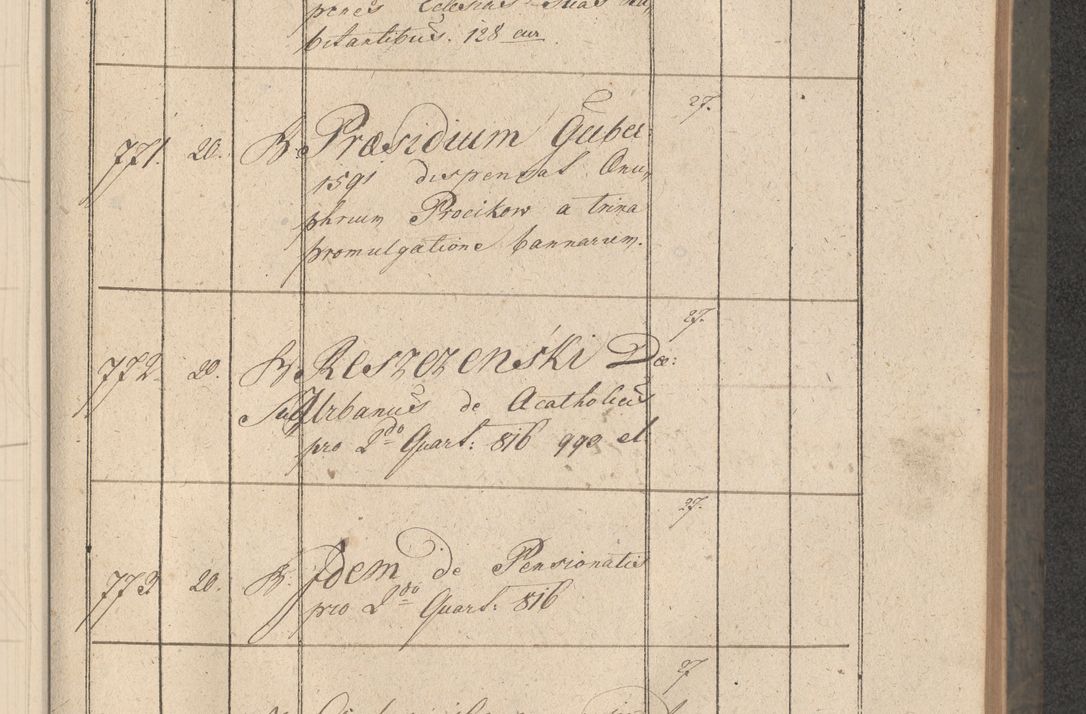 penes Eclesias suas ha,
bitantibus. 128 cur
27.
771. 20. B. Præsidium Guber:
1591 dispensat Onu,
phrium Procikow a trina
promulgatione bannarum.
27.
772. 20. B. Reszezeński De:
Urbanus de Acatholicis
pro 2do Quart: 816 990 et
27.
773 20. B. Idem de Pensionatis
pro 2do Quart: 816
27